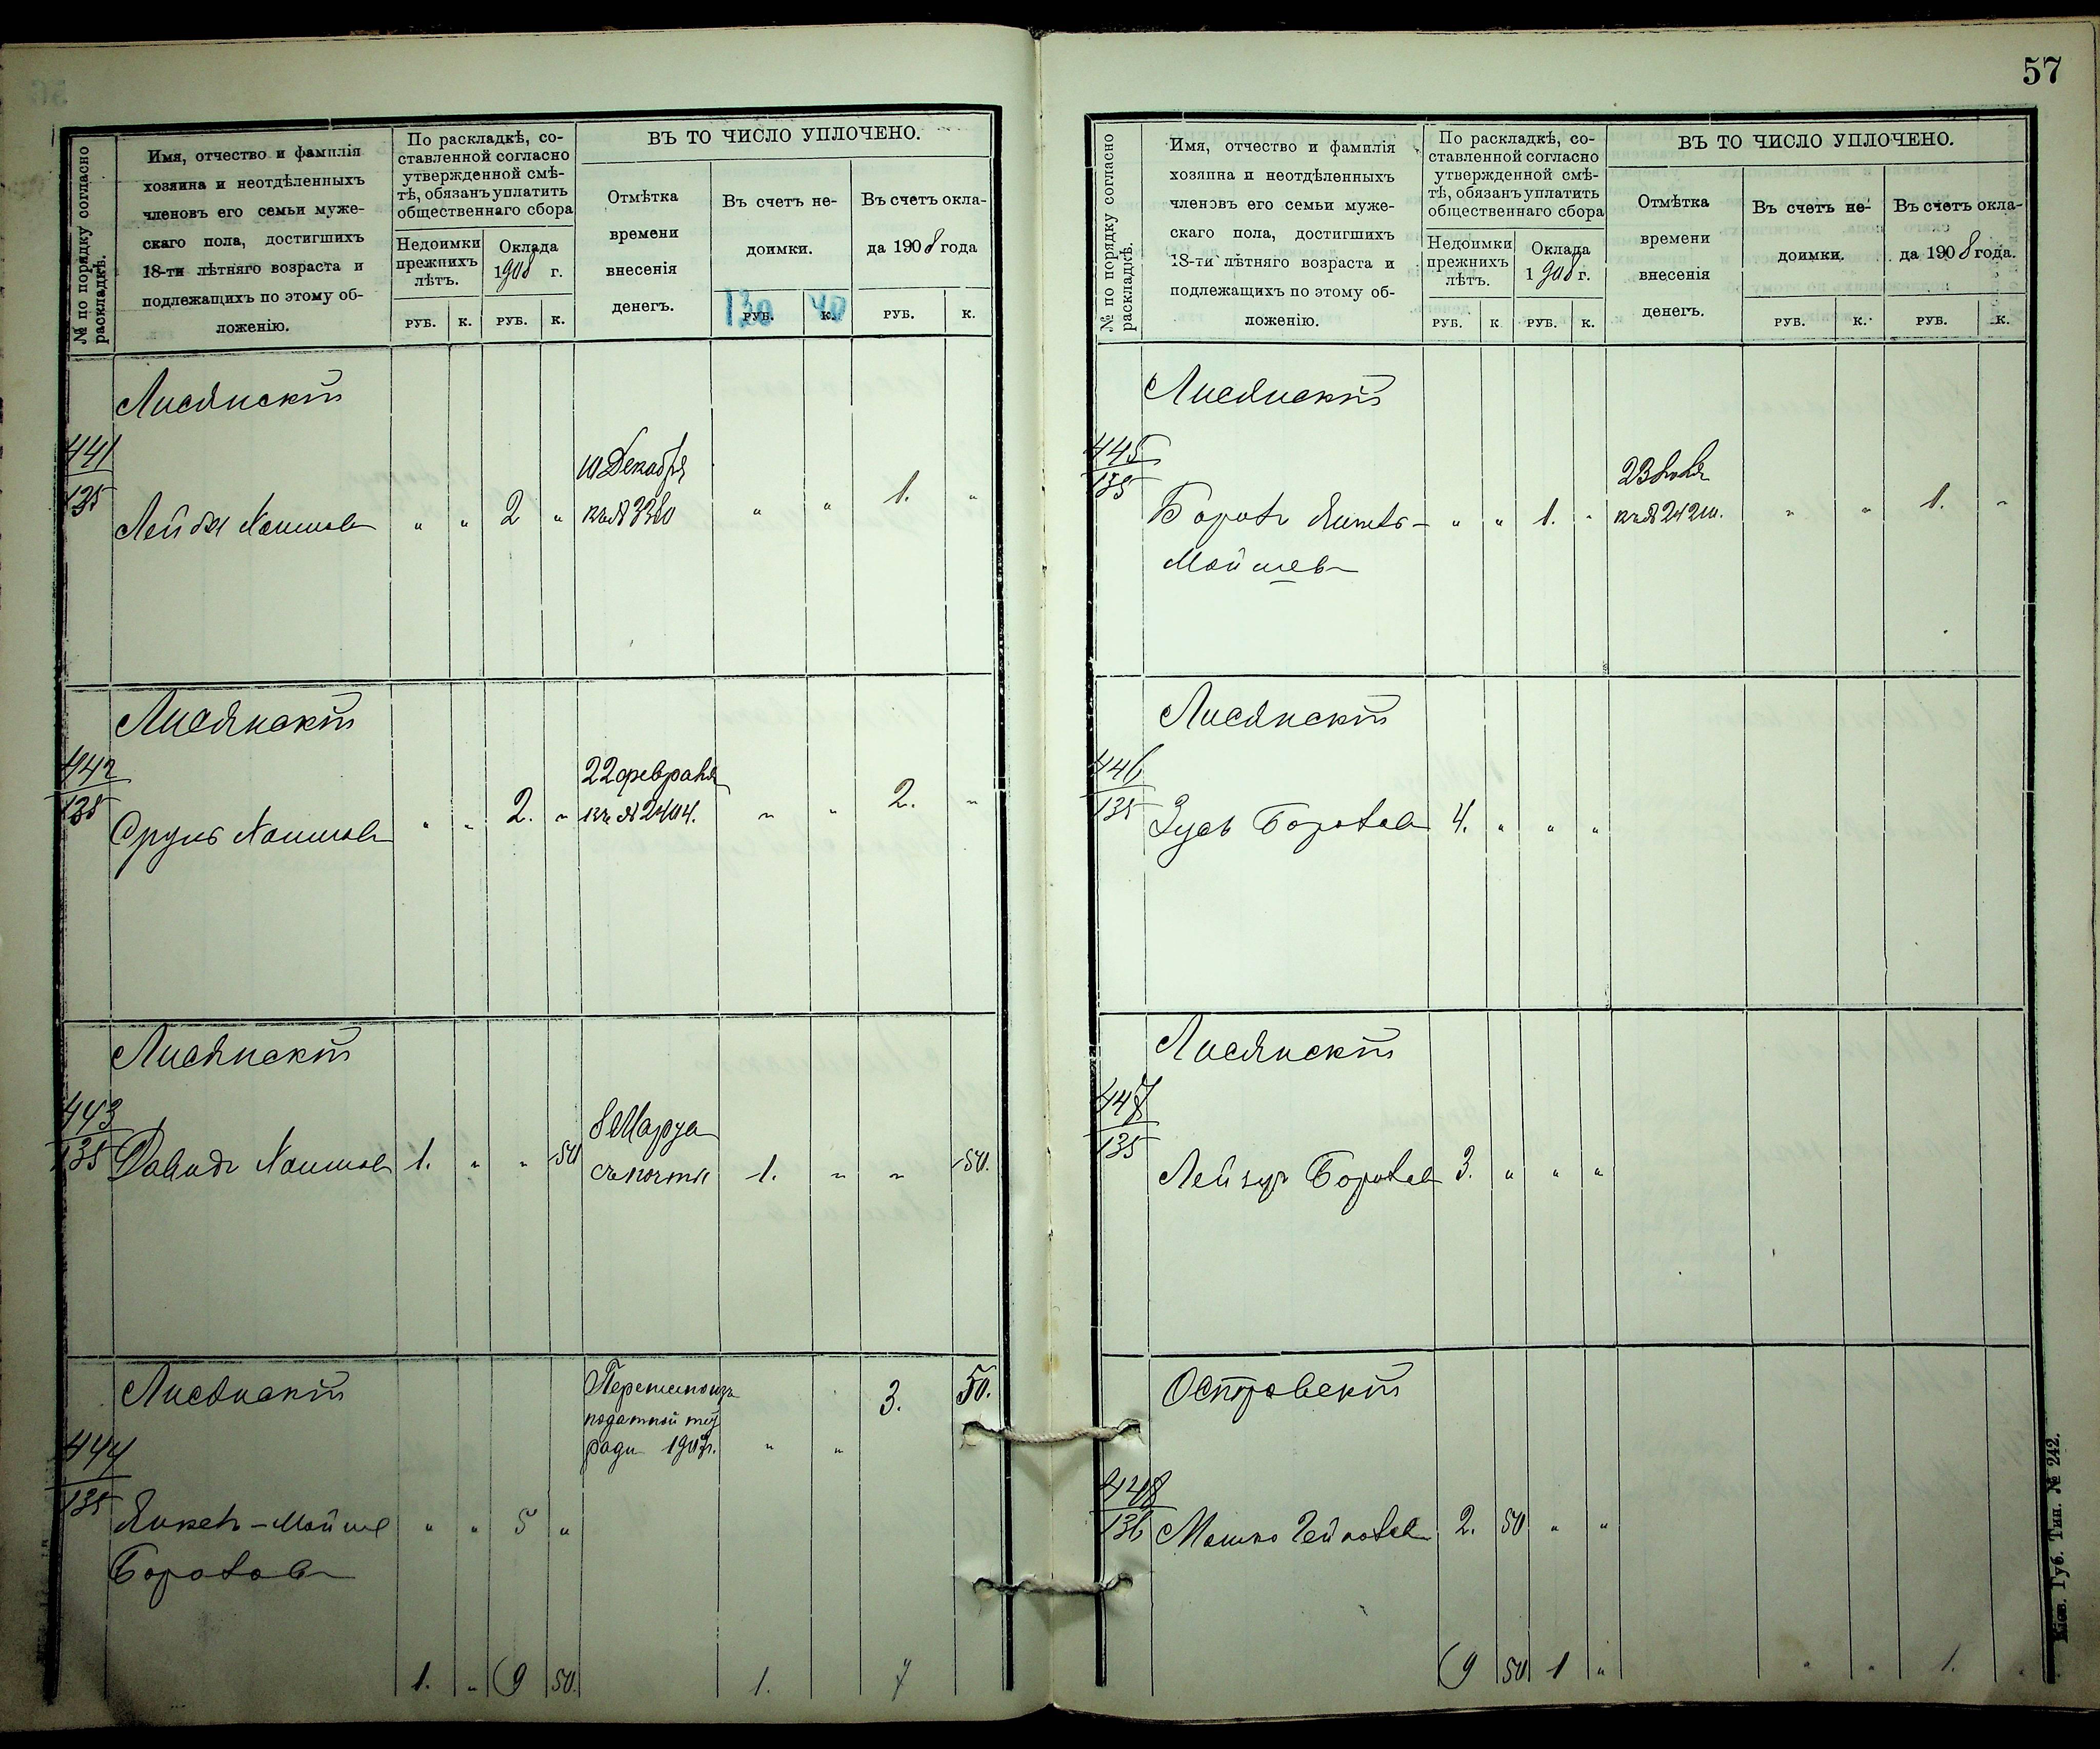 57
№ по порядку согласно раскладкѣ.
Имя, отчество и фамилія
хозяина и неотдѣленныхъ
членовъ его семьи муже-
скаго пола, достигшихъ
18-ти лѣтняго возраста и
подлежащихъ по этому об-
ложенію.
По раскладкѣ, со-
ставленной согласно
утвержденной смѣ-
тѣ, обязанъ уплатить
общественнаго сбора
Недоимки
прежнихъ
лѣтъ.
Оклада
1908 г.
РУБ. К. РУБ. К.
ВЪ ТО ЧИСЛО УПЛОЧЕНО.
Отмѣтка
времени
внесенія
денегъ.
Въ счетъ не-
доимки.
130 40
РУБ. К.
Въ счетъ окла-
да 1908 года
РУБ. К.
Лисянскій
441
135
Лейба Хаимовъ " " 2 "
10 Декабря
кв.№ 3380
" " 1. "
Лисянскій
442
135
Сруль Хаимовъ " " 2. "
22 февраля
кв. № 2404.
" " 2. "
Лисянскій
443
135
Давидъ Хаимовъ 1. " " 50
8 Марта
съ почты
1. " " 50.
Лисянскій
444
135
Янкель-Мойше
Бороховъ
" " 5 "
податной тет
ради
" " 3. 50.
1. " 9 50.
1. 7
№ по порядку согласно раскладкѣ.
Имя, отчество и фамилія
хозяина и неотдѣленныхъ
членовъ его семьи муже-
скаго пола, достигшихъ
18-ти лѣтняго возраста и
подлежащихъ по этому об-
ложенію.
По раскладкѣ, со-
ставленной согласно
утвержденной смѣ-
тѣ, обязанъ уплатить
общественнаго сбора
Недоимки
прежнихъ
лѣтъ.
Оклада
1908 г.
РУБ. К РУБ. К.
ВЪ ТО ЧИСЛО УПЛОЧЕНО.
Отмѣтка
времени
внесенія
денегъ.
Въ счетъ не-
доимки.
РУБ. К.
Въ счетъ окла-
да 1908 года.
РУБ. К.
Лисянскій
445
135
Борохъ Янкель-
Мойшевъ
" " 1. "
кв.№ 24210.
" " 1. "
Лисянскій
446
135
Зусь Бороховъ 4. " " "
Лисянскій
447
135
Лейзеръ Бороховъ 3. " " "
Островскій
448
136
Мошко 2. 50 " "
9 50 1 "
" " 1. "
Кіев. Губ. Тип. № 242.